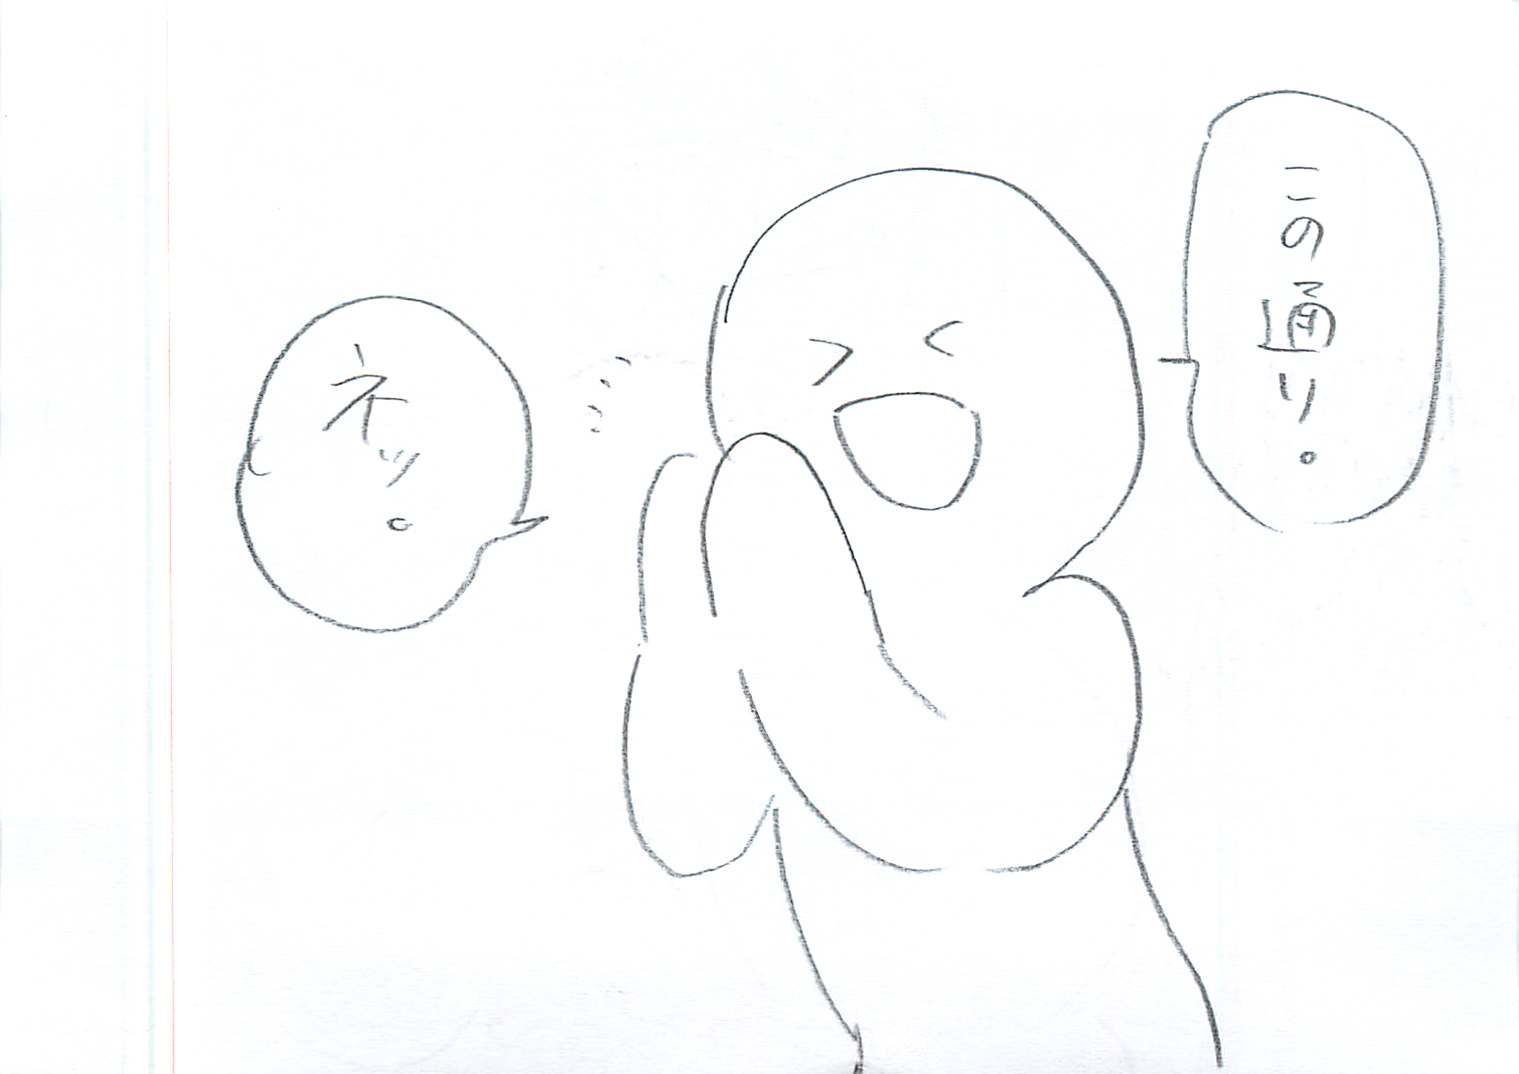 この通り。
ネッ。